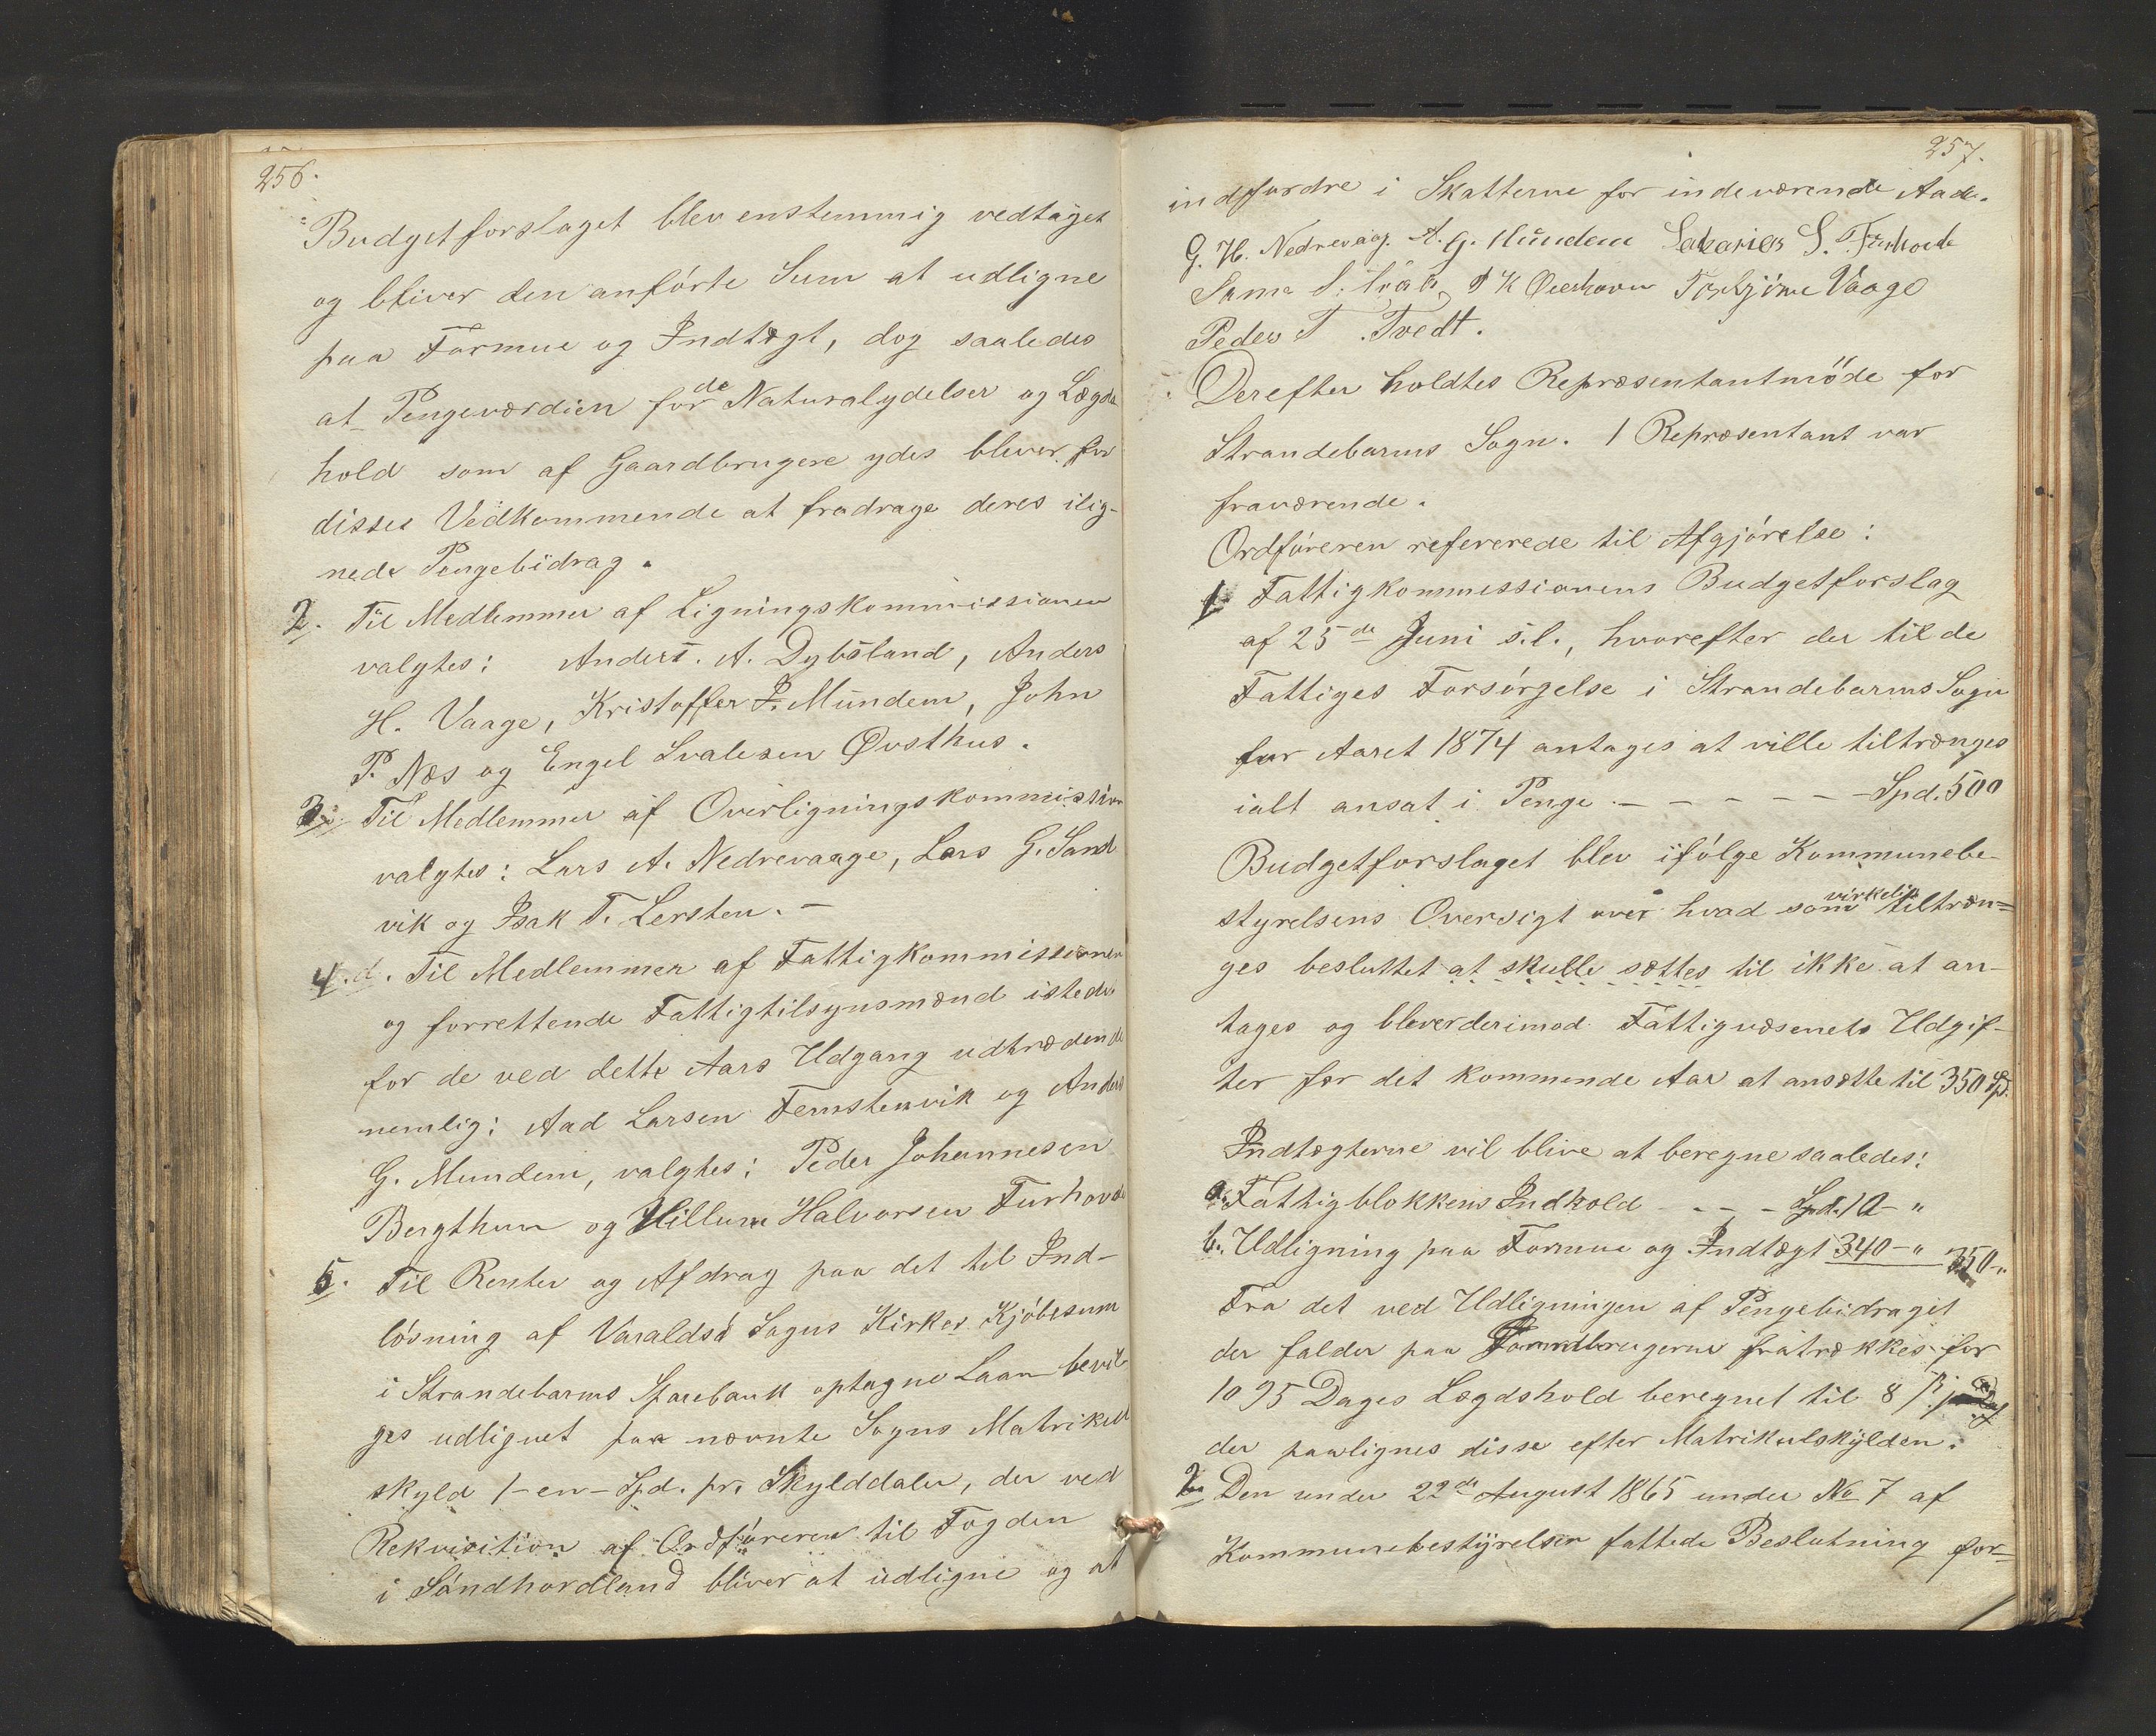 256.
Budgetforslaget blev enstemmig vedtaget
og bliver den anførte Sum at udligne
paa Formue og Indtægt, dog saaledes
at Pengeværdien for de Naturalydelser og Lægds
hold som af Gaardbrugere ydes bliver for
disses Vedkommende at fradrage deres ilig-
nede Pengebidrag.
2. Til Medlemmer af Ligningskommissionen
valgtes: Anders. A. Dybsland, Anders
H. Vaage, Kristoffer J. Mundem, John
P. Næs og Engel Svalesen Øvsthus.
3. Til Medlemmer af Overligningskommission
valgtes: Lars A. Nedrevaage, Lars G. Sand
vik og Isak T. Lersten. –
4.d. Til Medlemmer af Fattigkommissionen
og forrettende Fattigtilsynsmænd istede
for de ved dette Aars Udgang udtrædende
nemlig: Aad Larsen Femstenvik og Anders
G. Mundem, valgtes: Peder Johannesen
Bergthun og Hillum Halvorsen Furhovde
5. Til Renter og Afdrag paa det til Ind-
løsning af Varaldsø Sogns Kirkes Kjøbesum
i Strandebarms Sparebank optagne Laan bevil
ges udlignet paa nævnte Sogns Matrikul
skyld 1 – en – Spd. pr. Skylddaler, der ved
Rekvisition af Ordføreren til Fogden
i Søndhordland bliver at udligne og at
257.
indfordre i Skatterne for indeværende Aar.
G. H. Nedrevaag. A. G. Mundem Sakarias S. Furhovde
S. P K Torbjörn Vaage
Peder T. Tvedt.
Derefter holdtes Repræsentantmöde for
Strandebarms Sogn. 1 Repræsentant var
fraværende.
Ordføreren refererede til Afgjørelse:
1. Fattigkommissionens Budgetforslag
af 25de Juni s.l., hvorefter der til de
Fattiges Forsørgelse i Strandebarms Sogn
for Aaret 1874 antages at ville tiltrænges
ialt ansat i Penge – – – – – – Spd. 500
Budgetforslaget blev ifølge Kommunebe-
styrelsens Oversigt over hvad som virkelig tiltræn=
ges besluttet at skulle sættes til ikke at an-
tages og bliver derimod Fattigvæsenets Udgif-
ter for det kommende Aar at ansætte til 350 Sp.
Indtægterne vil blive at beregne saaledes:
a. Fattigblokkens Indhold - - - Spd. 10 – "
b. Udligning paa Formue og Indtægt 340 – " 350 – "
Fra det ved Udligningen af Pengebidraget
der falder paa Jordbrugerne fratrækkes for
1095 Dages Lægdshold beregnet til 8 ß
der paalignes disse efter Matrikulskylden.
2. Den under 22de August 1865 under No 7 af
Kommunebestyrelsen fattede Beslutning for=